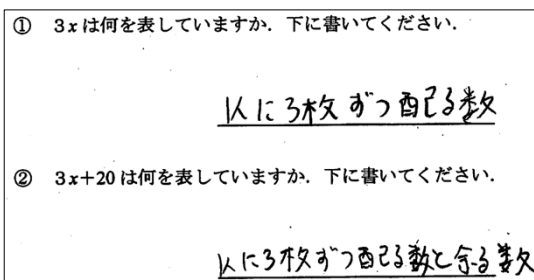 ① 3xは何を表していますか．下に書いてください．
1人に3枚ずつ配る数
② 3x+20は何を表していますか．下に書いてください．
1人に3枚ずつ配る数と余る数